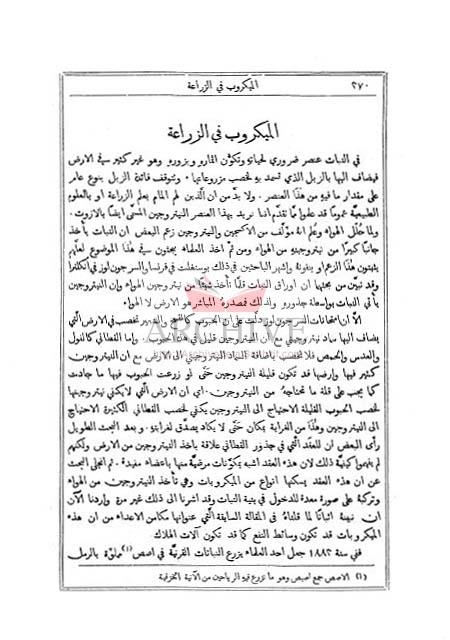 ٢٧٠ الميكروب في الزراعة
الميكروب في الزراعة
في النبات عنصر ضروري لحياتهِ وتكوّن اثماره وبزوره وهو غير كثير في الارض
فيضاف اليها بالزبل الذي تسمد بهِ لخصب مزروعاتها. وتتوقف فائدة الزبل بنوع عام
على مقدار ما فيهِ من هذا العنصر. ولا بدّ من ان الذين لهم المام بعلم الزراعة او بالعلوم
الطبيعيَّة عموماً قد علموا ممَّا تقدَّم اننا نريد بهذا العنصر النيتروجين المسمَّى ايضاً بالازوت.
ولمَّا حُلّل الهواء وعُلم انهُ مؤلَّف من الاكسجين والنيتروجين زعم البعض ان النبات يأخذ
جانباً كبيراً من نيتروجينهِ من الهواء ومن ثمّ اخذ العلماء يبحثون في هذا الموضوع لعلّهم
يثبتون هذا الزعم او ينفونهُ واشهر الباحثين في ذلك بوسنغلت في فرنسا والسرجون لوز في انكلترا
وقد تبيّن من بحثهما ان اوراق النبات قلّما تأخذ شيئاً من نيتروجين الهواء وان النيتروجين
يأتي النبات بواسطة جذورهِ ولذلك فمصدرهُ المباشر هو الارض لا الهواء
الاَّ ان امتحانات السرجون لوز دلّت على ان الحبوب كالقمح والشعير تخصب في الارض التي
يضاف اليها سماد نيتروجيني مع ان النيتروجين قليل في هذه الحبوب. واما القطاني كالفول
والعدس والحمص فلا تخصب باضافة السماد النيتروجيني الى الارض مع ان النيتروجين
كثير فيها وارضها قد تكون قليلة النيتروجين حتَّى لو زرعت الحبوب فيها ما جادت
كما يجب على قلة ما تحتاجهُ من النيتروجين. اي ان الارض التي لا يكفي نيتروجينها
لخصب الحبوب القليلة الاحتياج الى النيتروجين يكفي لخصب القطاني الكثيرة الاحتياج
الى النيتروجين وهذا من الغرابة بمكان حتَّى لا يكاد يصدَّق لغرابتهِ. وبعد البحث الطويل
رأى البعض ان للعقد التي في جذور القطاني علاقة باخذ النيتروجين من الارض ولكنهم
لم يفهموا كيفيَّة ذلك لان هذه العقد اشبه بتكوّنات مرضيَّة منها باعضاء مفيدة. ثم انجلى البحث
عن ان هذه العقد يسكنها انواع من الميكروبات وهي تأخذ النيتروجين من الهواء
وتركبهُ على صورة معدة للدخول في بنية النبات وقد اشرنا الى ذلك غير مرة واردنا الآن
ان نبينهُ اثباتاً لما قلناهُ في المقالة السابقة التي عنوانها مكامن الاعداء من ان هذه
الميكروبات قد تكون وسائط النفع كما قد تكون آلات الهلاك
ففي سنة ١٨٨٣ جعل احد العلماء يزرع النباتات القرنيَّة في اصص(١) مملوَّة بالرمل
(١) الاصص جمع اصيص وهو ما تزرع فيهِ الرياحين من الآنية الخزفية
ARCHIVE